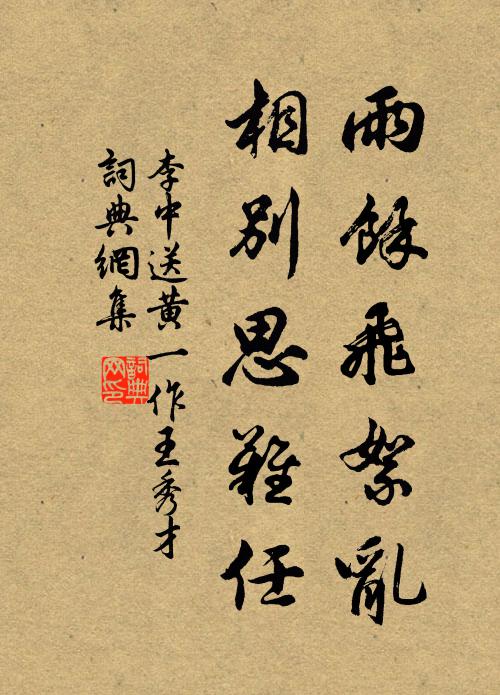 雨餘飛絮亂
相別思難任
李中送黃一作王秀才
詞典網集
詞典网印